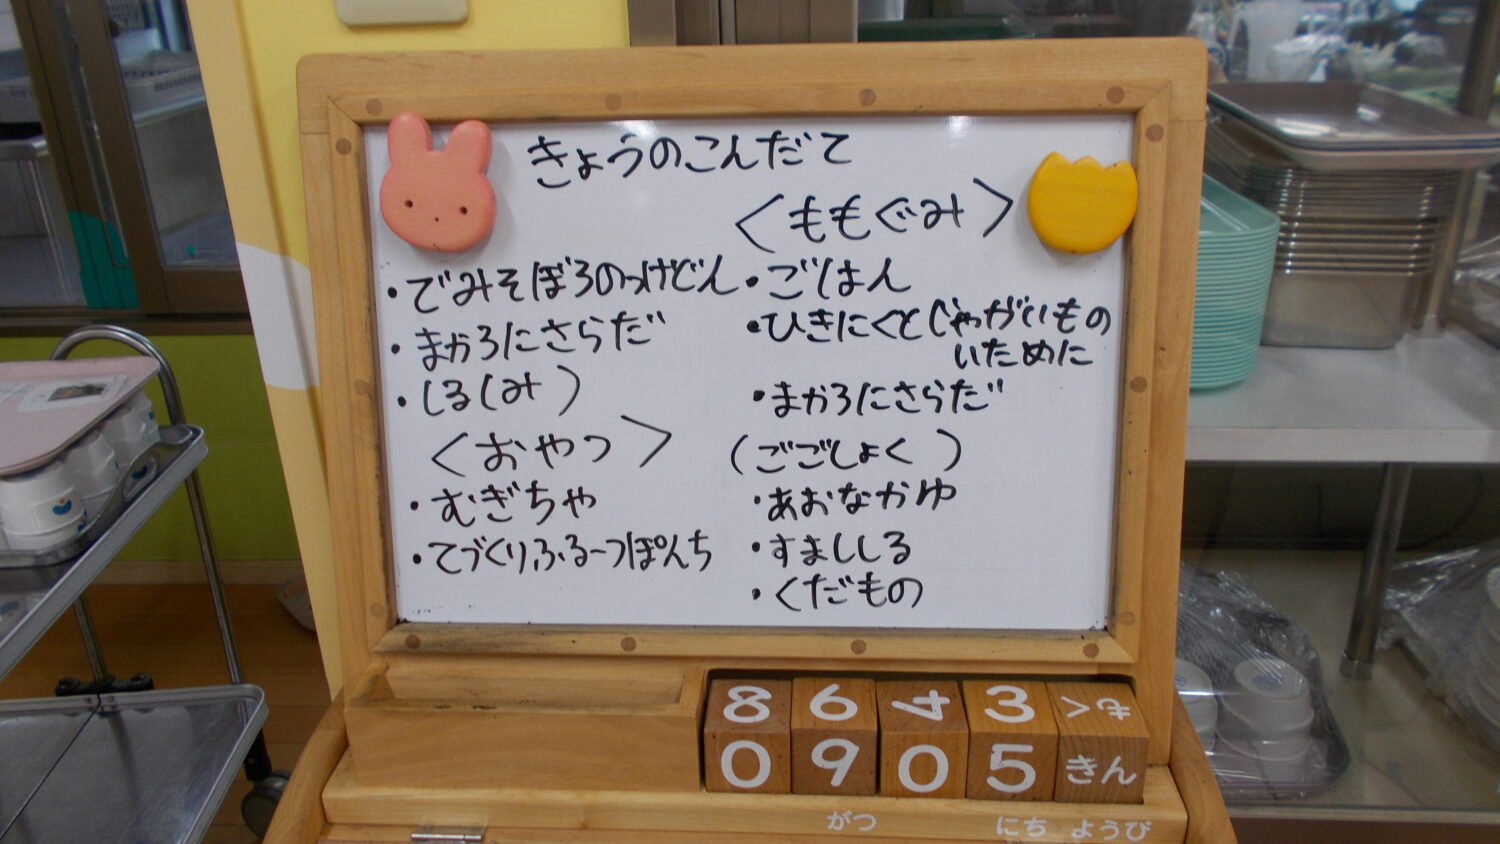 きょうのこんだて
・でみそぼろのっけどん
・まかろにさらだ
・しる(みそ)
<おやつ>
・むぎちゃ
・てづくりふるーつぽんち
<ももぐみ>
・ごはん
・ひきにくとじゃがいもの
いために
・まかろにさらだ
(ごごしょく)
・あおなかゆ
・すましじる
・くだもの
8 6 4 3
0 9 0 5 きん
がつ にち ようび